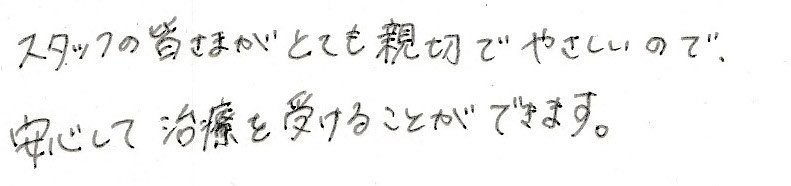 スタッフの皆さまがとても親切でやさしいので、
安心して治療を受けることができます。